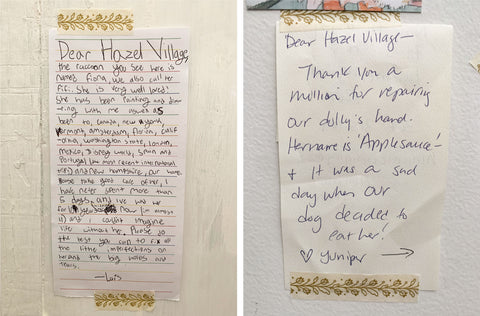 Dear Hazel Village,
the raccoon you see here is
named Fiona, we also call her
Fifi. She is very well loved!
She has been
with me
been to, Canada, new york,
Vermont, amsterdam, Florida, calif
ornia, washington state, London,
mexico, Disney world, Spain and
Portugal (the most recent internationl
and new hampshire, our home.
Please take good care of her, I
have never spent more than
5 days and ive had her
for now (im almost
11) and i can't imagine
life without her. Please do
the best you can to fix all
the little imperfections on
her and the big holes and
tears.
—Lois
Dear Hazel Village—
Thank you a
million for repairing
our dolly's hand.
Her name is 'Applesauce'
+ it was a sad
day when our
dog decided to
eat her!
♡ Juniper →